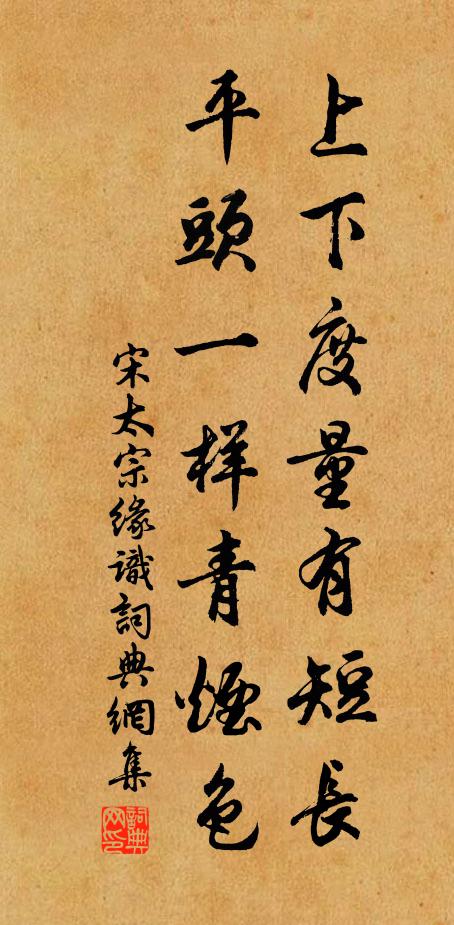 上下度量有短長
平頭一样青煙色
宋太宗緣識詞典網集
詞典網印